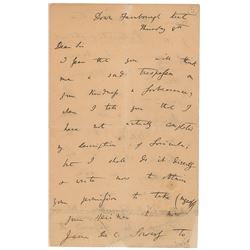 Down Farnborough Kent
Thursday 9th
Dear Sir
I fear that you will think
me a sad trespasser on
your kindness & forbearance,
when I tell you that I
have not actually completed
my description of
but I shall do it directly
& write now to
your permission to take (myself
your specimens to